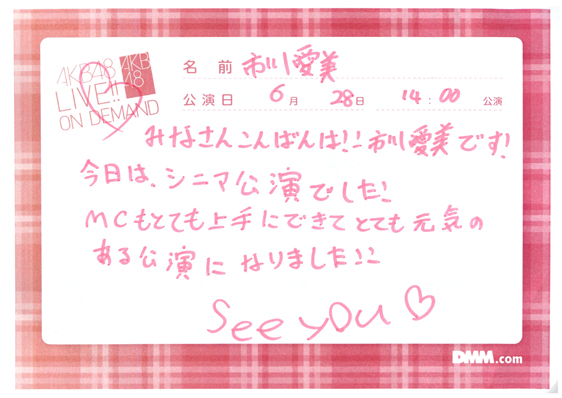 AKB48
LIVE!!
ON DEMAND
AKB
48
名前 市川愛美
公演日 6月 28日 14:00 公演
みなさんこんばんは!! 市川愛美です!
今日は、シニマ公演でした!
MCもとても上手にできてとても元気の
ある公演になりました!!
See you♡
DMM.com